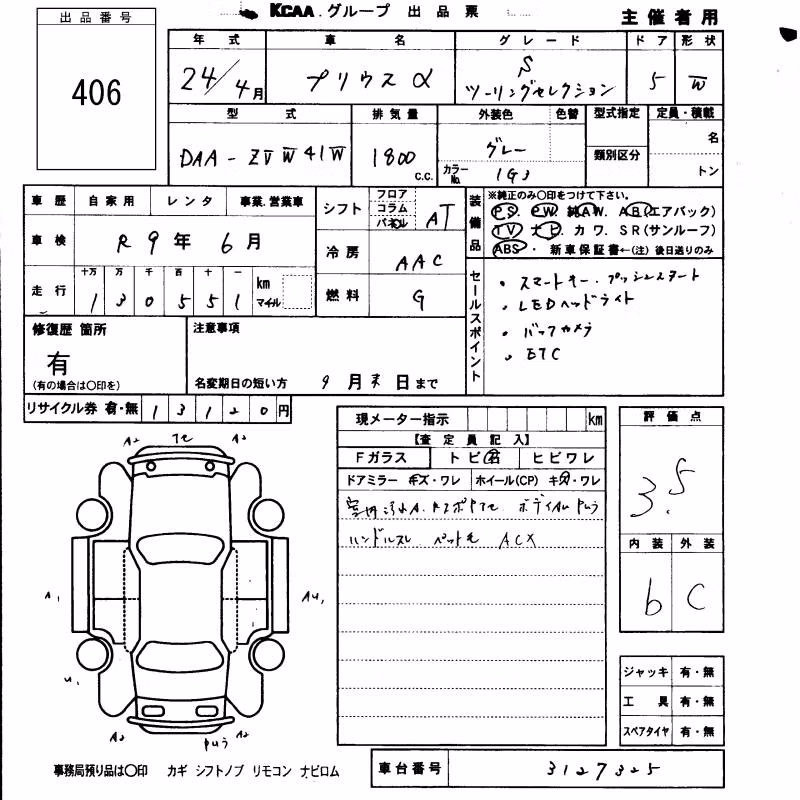 KCAA.グループ 出品票
主催者用
出品番号
406
年式 車名 グレード ドア 形状
24/4月 プリウスα S ツーリングセレクション 5 W
型式 排気量 外装色 色替 型式指定 定員・積載
DAA-ZVW41W 1800 c.c. グレー 名
カラーNo. 1G3 類別区分 トン
車歴 自家用 レンタ 事業.営業車
車検 R9年6月
走行 十万 万 千 百 十 一
130551 km マイル
シフト フロア コラム パネル AT
冷房 AAC
燃料 G
装備品 ※純正のみ○印をつけて下さい。
PS. PW. 純AW. AB(エアバック)
TV ナビ カワ. SR(サンルーフ)
ABS・ 新車保証書←(注) 後日送りのみ
セールスポイント
・スマートキー.プッシュスタート
・LEDヘッドライト
・バックカメラ
・ETC
修復歴 箇所
有
(有の場合は○印を)
注意事項
名変期日の短い方 9月末日まで
リサイクル券 有・無 13120円
現メーター指示 km
【査定員記入】
Fガラス トビ石 ヒビワレ
ドアミラー キズ・ワレ ホイール(CP) キズ・ワレ
ハンドルスレ ペット毛 ACX
評価点
3.5
内装 外装
b C
ジャッキ 有・無
工具 有・無
スペアタイヤ 有・無
A2 A2
A1 AU1
U1
A2 A2
事務局預り品は○印 カギ シフトノブ リモコン ナビロム
車台番号 3127325